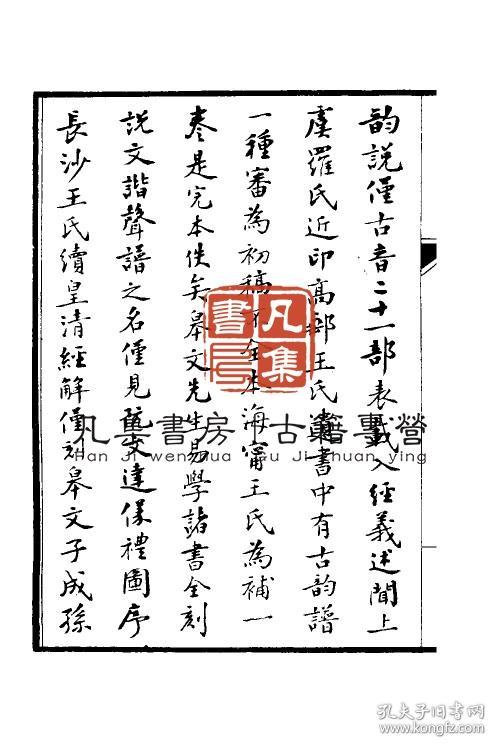 韵說僅古音二十一部表載入經義述聞上
虞羅氏近印高郵王氏遺書中有古韵譜
一種審為初稿不全本海甯王氏為補一
卷是完本佚矣皋文先生易學諸書全刻
說文諧聲譜之名僅見阮文達儀禮圖序
長沙王氏續皇清經解僅刻皋文子成孫
凡集書房 古籍專營
Fan Ji wenhua Gu Ji zhuan ying
凡集書局
孔夫子旧书网
kongfz.com